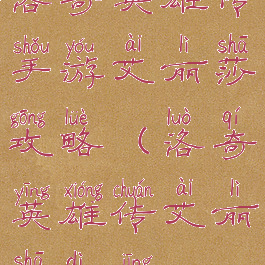 洛奇英雄传
shǒu yóu ài lì shā
手游艾丽莎
gōng lüè luò qí
攻略（洛奇
yīng xióng chuán ài lì
英雄传艾丽
shā dì